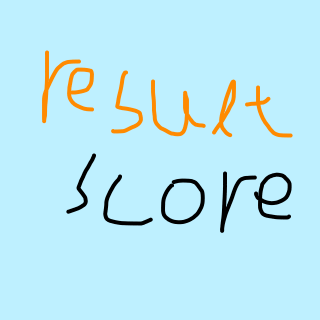 result
score